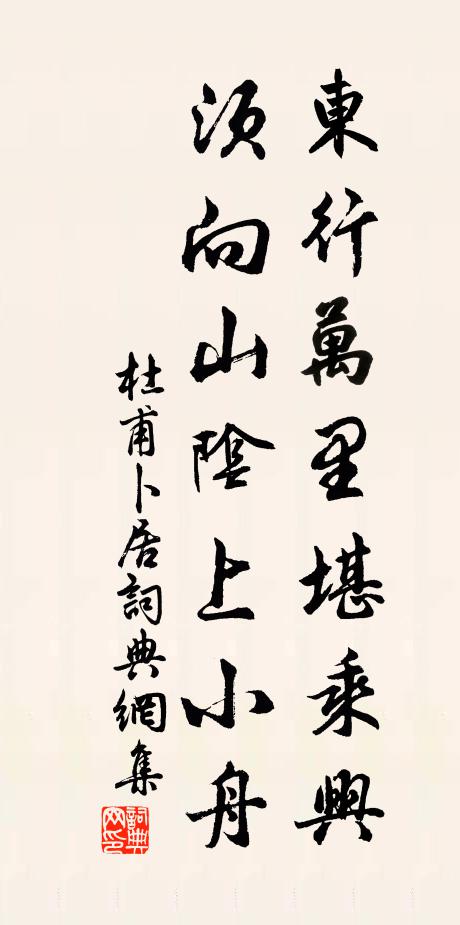 東行萬里堪乘興
須向山陰上小舟
杜甫卜居詞典網集
詞典網印